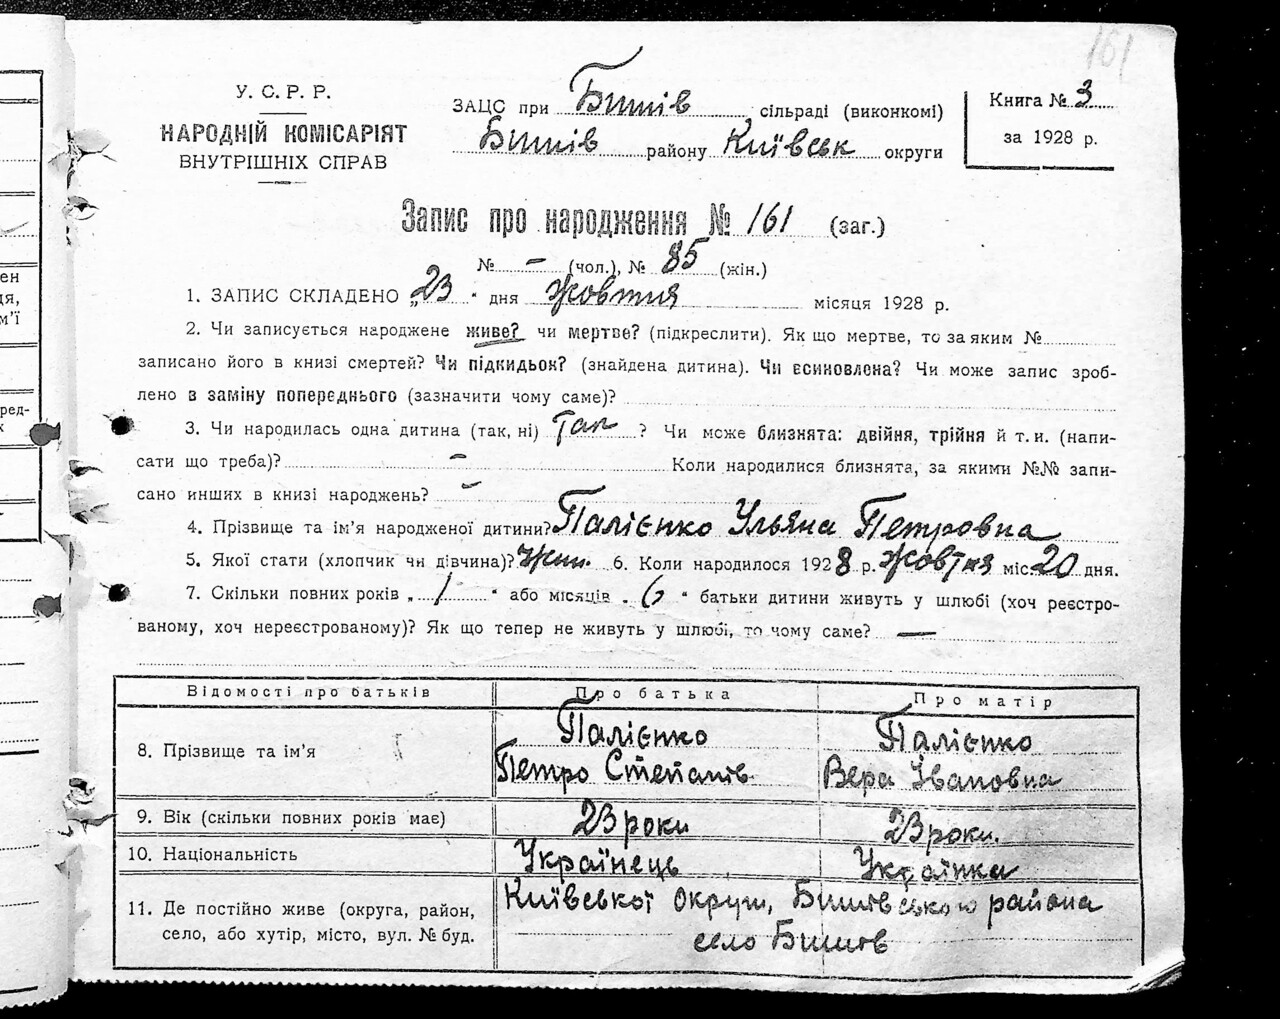 161
У. С. Р. Р.
НАРОДНІЙ КОМІСАРІЯТ
ВНУТРІШНІХ СПРАВ
ЗАЦС при Бишів сільраді (виконкомі)
Бишів району Київськ округи
Книга № 3
за 1928 р.
Запис про народження № 161 (заг.)
№ – (чол.), № 85 (жін.)
1. ЗАПИС СКЛАДЕНО „23“ дня Жовтня місяця 1928 р.
2. Чи записується народжене живе? чи мертве? (підкреслити). Як що мертве, то за яким №
записано його в книзі смертей? Чи підкидьок? (знайдена дитина). Чи всиновлена? Чи може запис зроб-
лено в заміну попереднього (зазначити чому саме)?
3. Чи народилась одна дитина (так, ні) Так ? Чи може близнята: двійня, трійня й т. и. (напи-
сати що треба)? – Коли народилися близнята, за якими №№ запи-
сано инших в книзі народжень? –
4. Прізвище та ім’я народженої дитини? Палієнко Ульяна Петровна
5. Якої стати (хлопчик чи дівчина)? Жін. 6. Коли народилося 1928 р. Жовтня міс. 20 дня.
7. Скільки повних років „ 1 “ або місяців „ 6 “ батьки дитини живуть у шлюбі (хоч реєстро-
ваному, хоч нереєстрованому)? Як що тепер не живуть у шлюбі, то чому саме? —
Відомості про батьків Про батька Про матір
8. Прізвище та ім’я Палієнко Палієнко
Петро Степанів Вера Івановна
9. Вік (скільки повних років має) 23 роки 23 роки.
10. Національність Українець Українка
11. Де постійно живе (округа, район,
село, або хутір, місто, вул. № буд.
Київської округи, Бишівського района
село Бишов
ен
ія,
м’ї
ред-
к